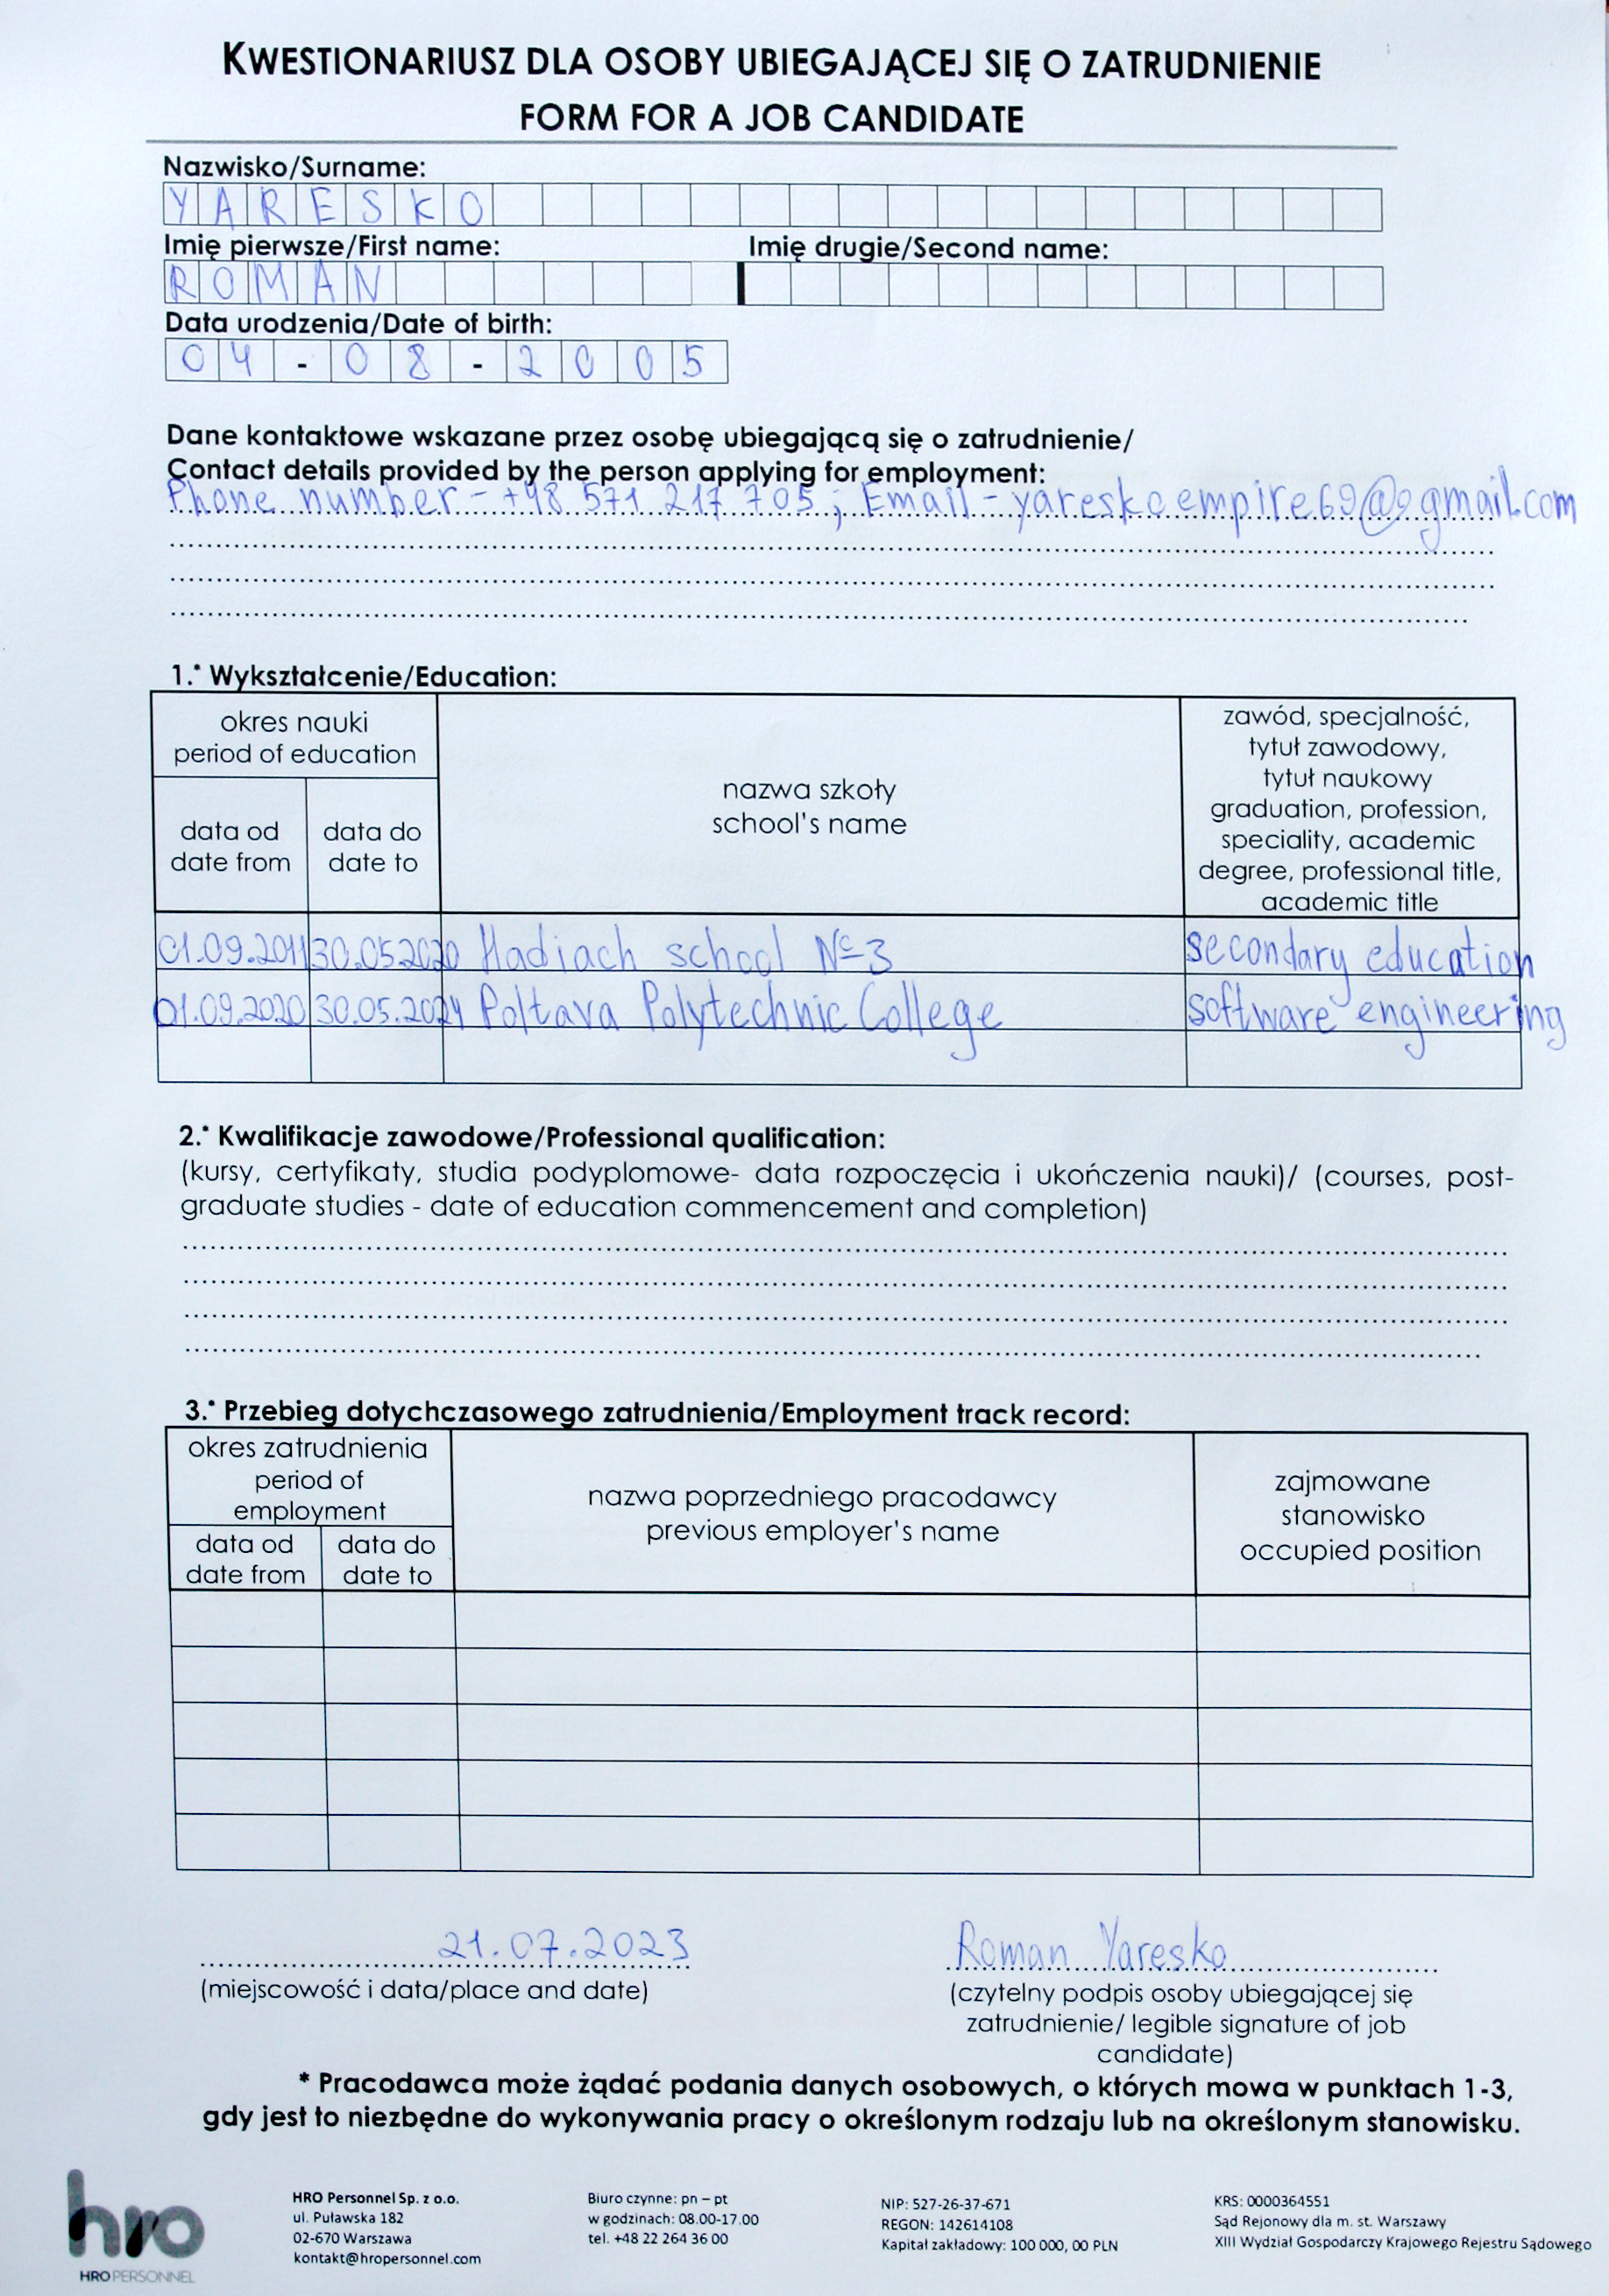 KWESTIONARIUSZ DLA OSOBY UBIEGAJĄCEJ SIĘ O ZATRUDNIENIE
FORM FOR A JOB CANDIDATE
Nazwisko/Surname:
YARESKO
Imię pierwsze/First name: Imię drugie/Second name:
ROMAN
Data urodzenia/Date of birth:
04-08-2005
Dane kontaktowe wskazane przez osobę ubiegającą się o zatrudnienie/
Contact details provided by the person applying for employment:
Phone number - +48 571 217 705; Email - yareskoempire69@gmail.com
1.* Wykształcenie/Education:
okres nauki
period of education
data od
date from
data do
date to
nazwa szkoły
school's name
zawód, specjalność,
tytuł zawodowy,
tytuł naukowy
graduation, profession,
speciality, academic
degree, professional title,
academic title
01.09.2011 30.05.2020 Hadiach school №3 secondary education
01.09.2020 30.05.2024 Poltava Polytechnic College software engineering
2.* Kwalifikacje zawodowe/Professional qualification:
(kursy, certyfikaty, studia podyplomowe- data rozpoczęcia i ukończenia nauki)/ (courses, post-
graduate studies - date of education commencement and completion)
3.* Przebieg dotychczasowego zatrudnienia/Employment track record:
okres zatrudnienia
period of
employment
data od
date from
data do
date to
nazwa poprzedniego pracodawcy
previous employer's name
zajmowane
stanowisko
occupied position
21.07.2023
(miejscowość i data/place and date)
Roman Yaresko
(czytelny podpis osoby ubiegającej się
zatrudnienie/ legible signature of job
candidate)
* Pracodawca może żądać podania danych osobowych, o których mowa w punktach 1-3,
gdy jest to niezbędne do wykonywania pracy o określonym rodzaju lub na określonym stanowisku.
hro
HRO PERSONNEL
HRO Personnel Sp. z o.o.
ul. Puławska 182
02-670 Warszawa
kontakt@hropersonnel.com
Biuro czynne: pn – pt
w godzinach: 08.00-17.00
tel. +48 22 264 36 00
NIP: 527-26-37-671
REGON: 142614108
Kapitał zakładowy: 100 000, 00 PLN
KRS: 0000364551
Sąd Rejonowy dla m. st. Warszawy
XIII Wydział Gospodarczy Krajowego Rejestru Sądowego